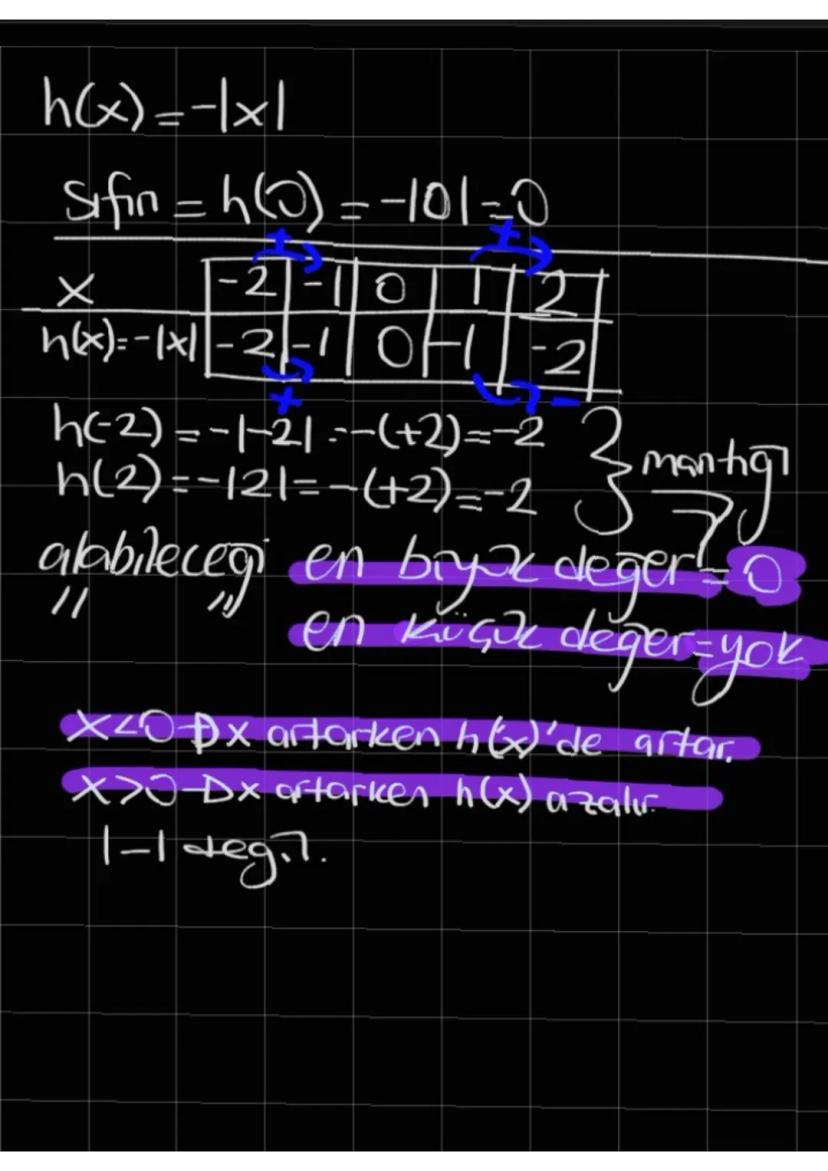 h(x) = -|x|
Sıfırı = h(0) = -|0| = 0
+ +
x -2 -1 0 1 2
h(x) = -|x| -2 -1 0 -1 -2
+ -
h(-2) = -|-2| = -(+2) = -2
h(2) = -|2| = -(+2) = -2 } mantığı
alabileceği en büyük değer = 0
" " en küçük değer = yok
x<0 → x artarken h(x)'de artar.
x>0 → x artarken h(x) azalır.
1-1 değil.